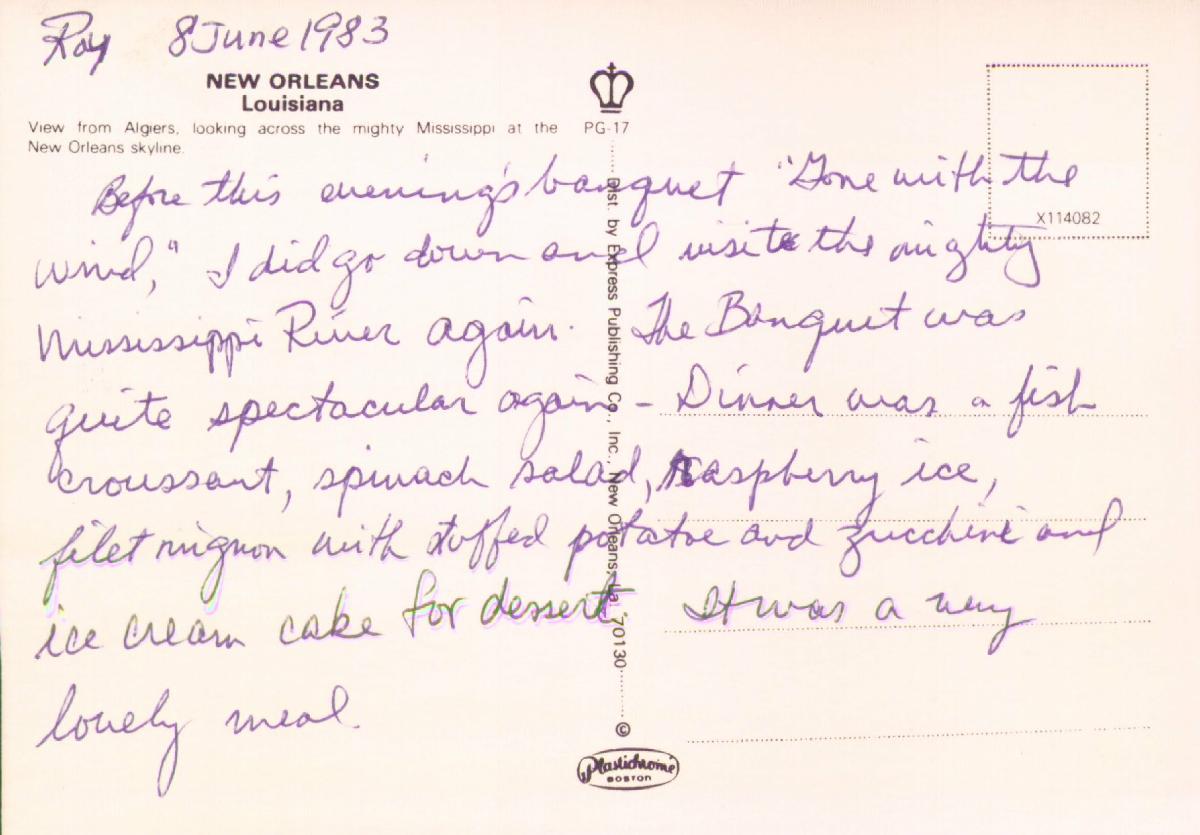 Roy 8 June 1983
NEW ORLEANS
Louisiana
View from Algiers, looking across the mighty Mississippi at the
New Orleans skyline.
PG-17
X114082
Before this evening's banquet "Gone with the
wind," I did go down and visite the mighty
Mississippi River again. The Banquet was
quite spectacular again - Dinner was a fish
croussant, spinach salad, Raspberry ice,
filet mignon with stuffed potatoe and zucchini and
ice cream cake for dessert It was a very
lovely meal.
Dist. by Express Publishing Co., Inc., New Orleans, La. 70130
©
Plastichrome
BOSTON